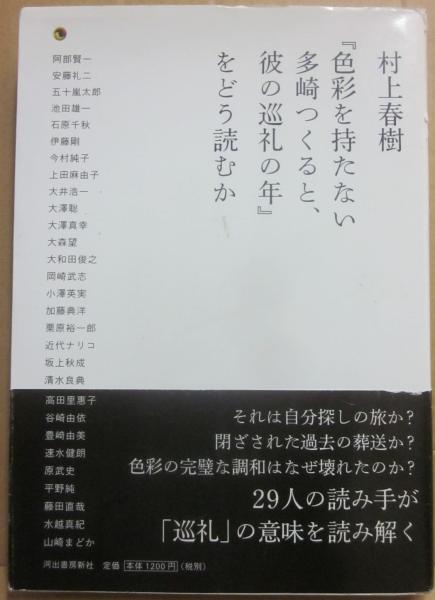 村上春樹
『色彩を持たない
多崎つくると、
彼の巡礼の年』
をどう読むか
阿部賢一
安藤礼二
五十嵐太郎
池田雄一
石原千秋
伊藤剛
今村純子
上田麻由子
大井浩一
大澤聡
大澤真幸
大森望
大和田俊之
岡崎武志
小澤英実
加藤典洋
栗原裕一郎
近代ナリコ
坂上秋成
清水良典
高田里惠子
谷崎由依
豊崎由美
速水健朗
原武史
平野純
藤田直哉
水越真紀
山崎まどか
それは自分探しの旅か?
閉ざされた過去の葬送か?
色彩の完璧な調和はなぜ壊れたのか?
29人の読み手が
「巡礼」の意味を読み解く
河出書房新社 定価 本体1200円(税別)